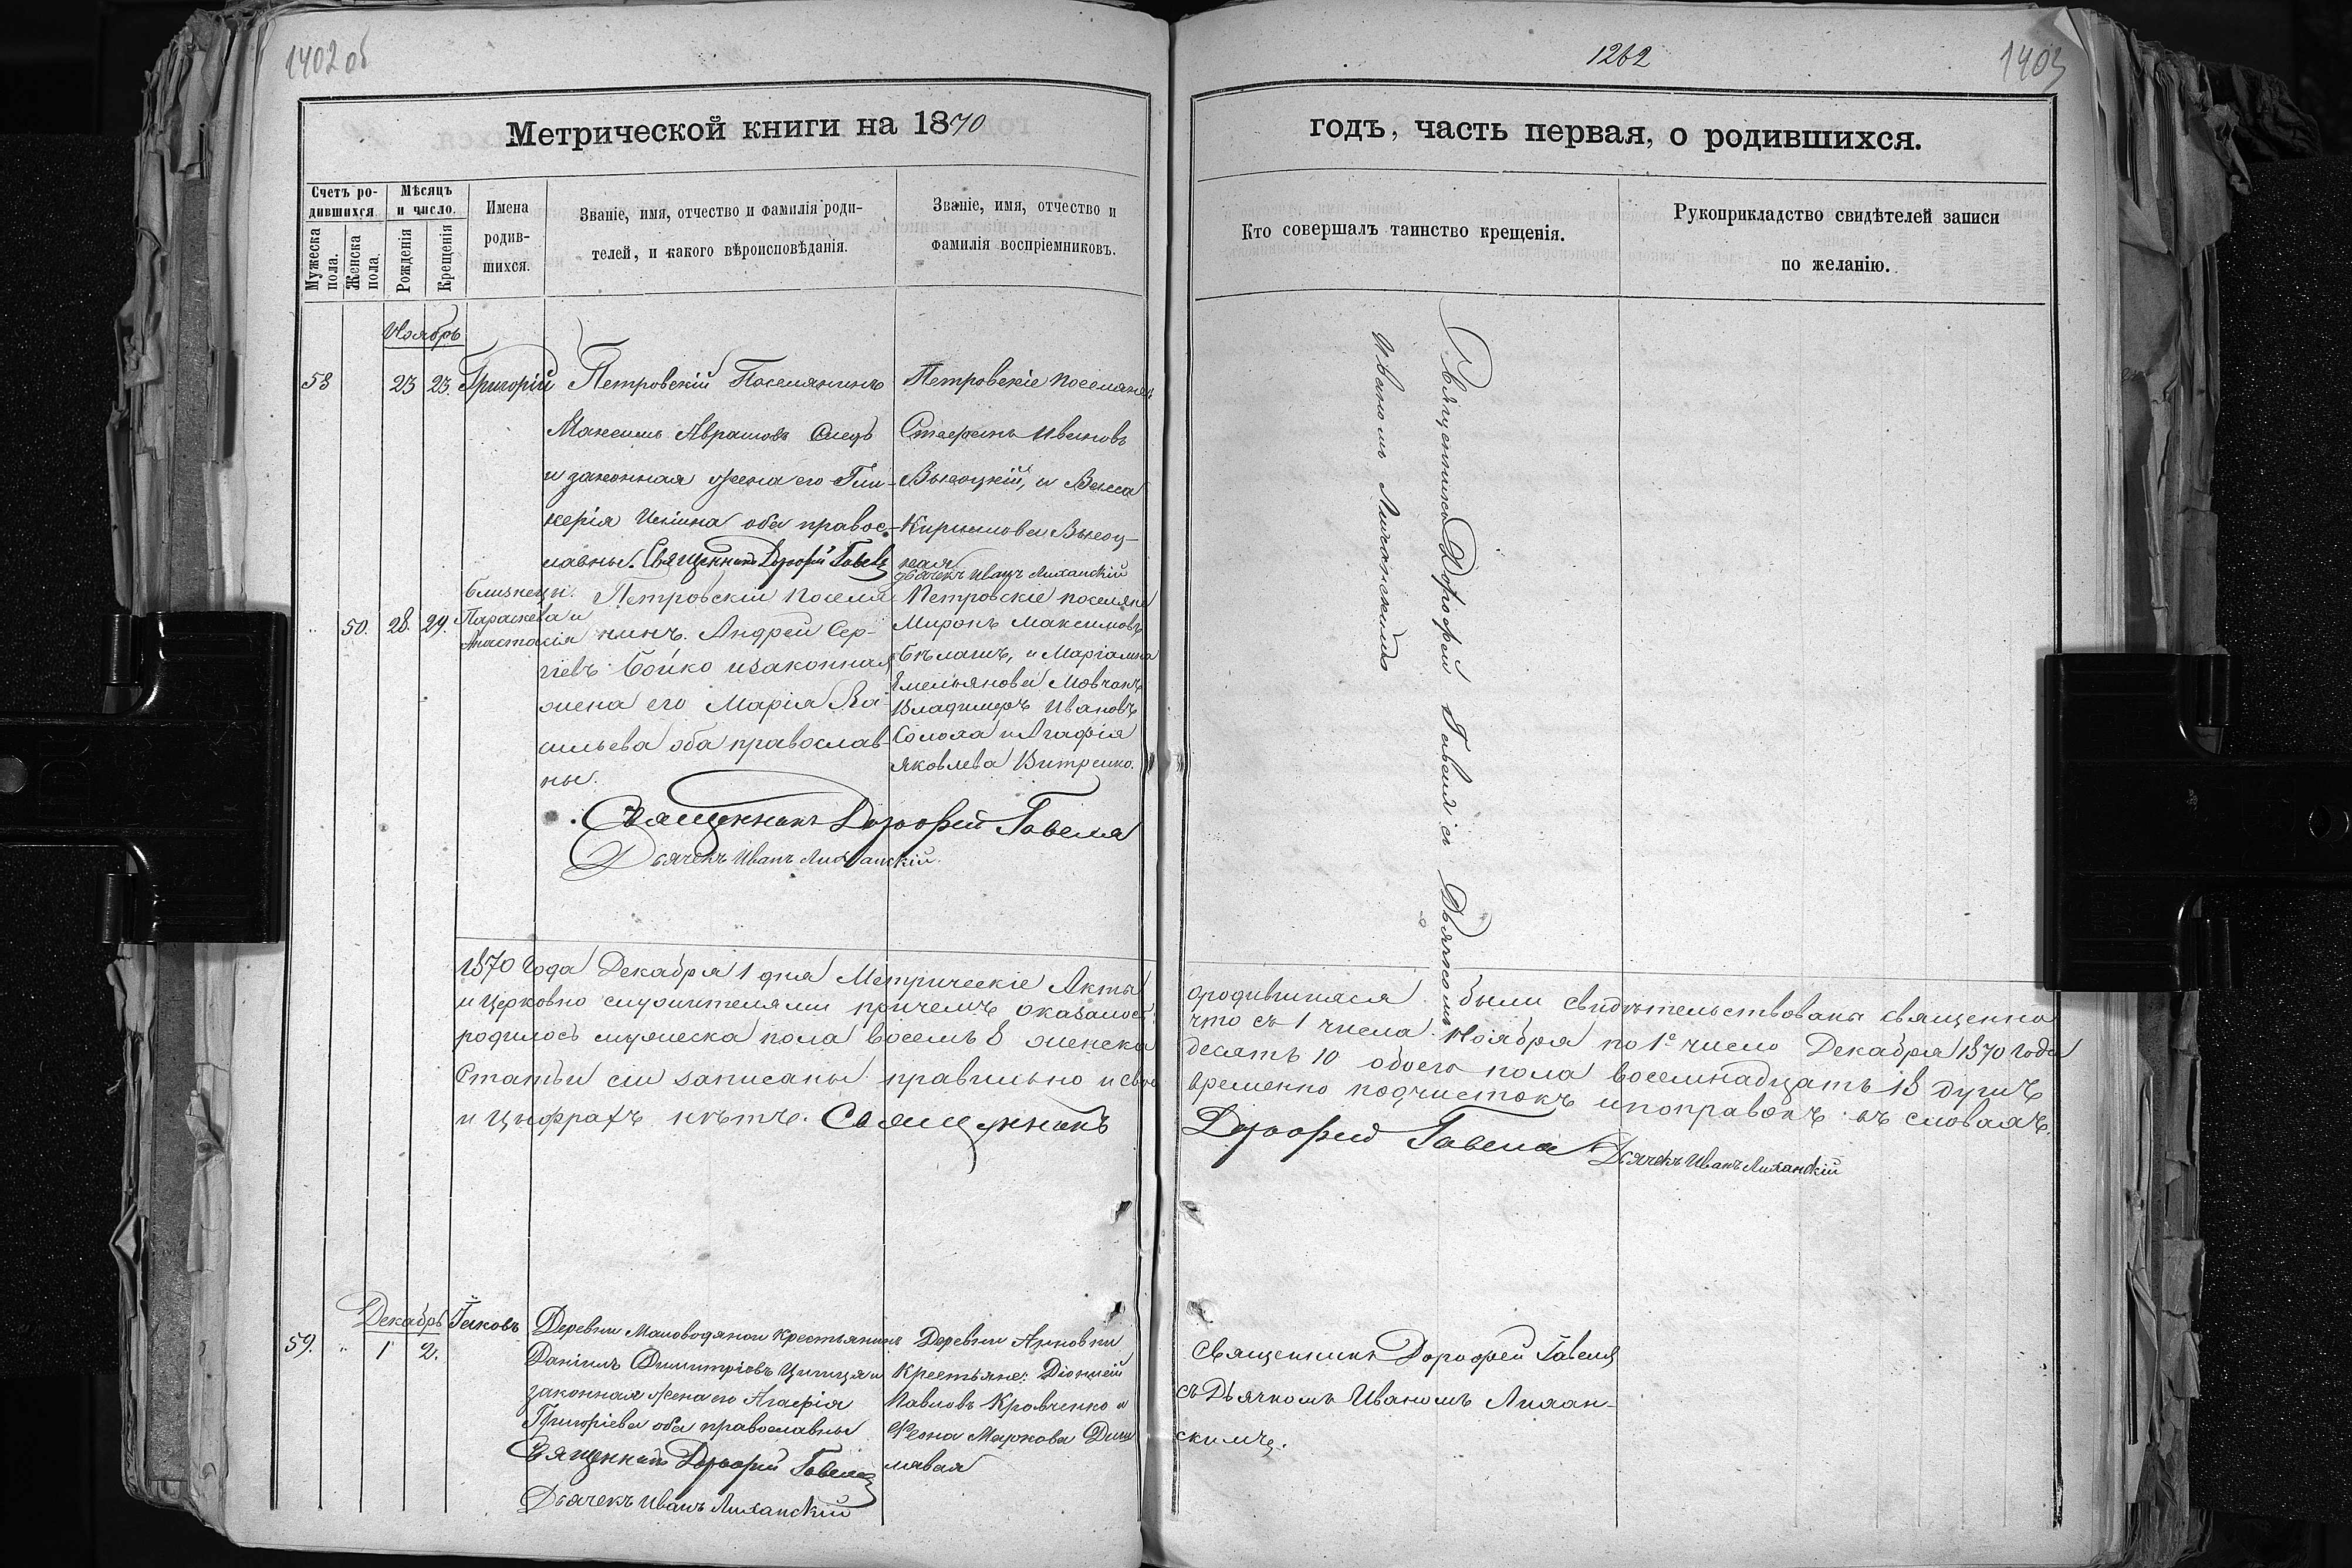 1402 об
1262
1403
Метрической книги на 1870
годъ, часть первая, о родившихся.
Счетъ родившихся.
Мужеска пола.
Женска пола.
Мѣсяцъ и число.
Рожденія
Крещенія
Имена родившихся.
Званіе, имя, отчество и фамилія роди-
телей, и какого вѣроисповѣданія.
Званіе, имя, отчество и
фамилія воспріемниковъ.
Кто совершалъ таинство крещенія.
Рукоприкладство свидѣтелей записи
по желанію.
Ноябрь
58 23 23. Григорій
Петровскій Поселянинъ
Максимъ Аврамовъ
и законная жена его Гли-
керія оба правос-
лавны. Священникъ Дорофей Гавеля
Петровскіе поселяне
Стефанъ Ивановъ
Высоцкій, и Васса
Кирилова Высоц-
кая
Дьячекъ Иванъ Лиханскій
Священникъ Дорофей Гавеля съ Дьячкомъ
Иваномъ Лиханскимъ
" 50. 28. 29.
близнецы.
Параскева и
Анастасія
Петровскій поселя
нинъ. Андрей Сер-
гіевъ Бойко и законная
жена его Марія Ва-
сильева оба православ-
ны.
Петровскіе поселяне
Миронъ Максимовъ
Бѣлашъ, и
Емельянова Мовчанъ
Владимеръ Ивановъ
и Агафія
Яковлева
Священникъ Дорофей Гавеля
Дьячекъ Иванъ Лиханскій.
1870 Года Декабря 1 дня Метрическіе Акты о родившихся были свидѣтельствованы священно
и церковно служителями причемъ оказалось: что съ 1 числа Ноября по 1е число Декабря 1870 года
родилось мужеска пола восемъ 8 женска десять 10 обоего пола восемнадцать 18 душъ
Статьи сіи записаны правильно и свое временно подчистокъ и поправокъ въ словахъ
и цыфрахъ нѣтъ. Священникъ Дорофей Гавеля Дьячекъ Иванъ Лиханскій
Декабрь
59. " 1 2. Іаковъ
Деревни Маловодяной крестьянинъ
Даніилъ Димитріевъ и
законная жена его Агафія
Григоріева оба православны
Священникъ Дорофей Гавеля
Дьячекъ Иванъ Лиханскій
Деревни Анновки
крестьяне: Діонисій
Павловъ Кравченко и
Маркова
Священникъ Дорофей Гавеля
съ Дьячкомъ Иваномъ Лихан-
скимъ.